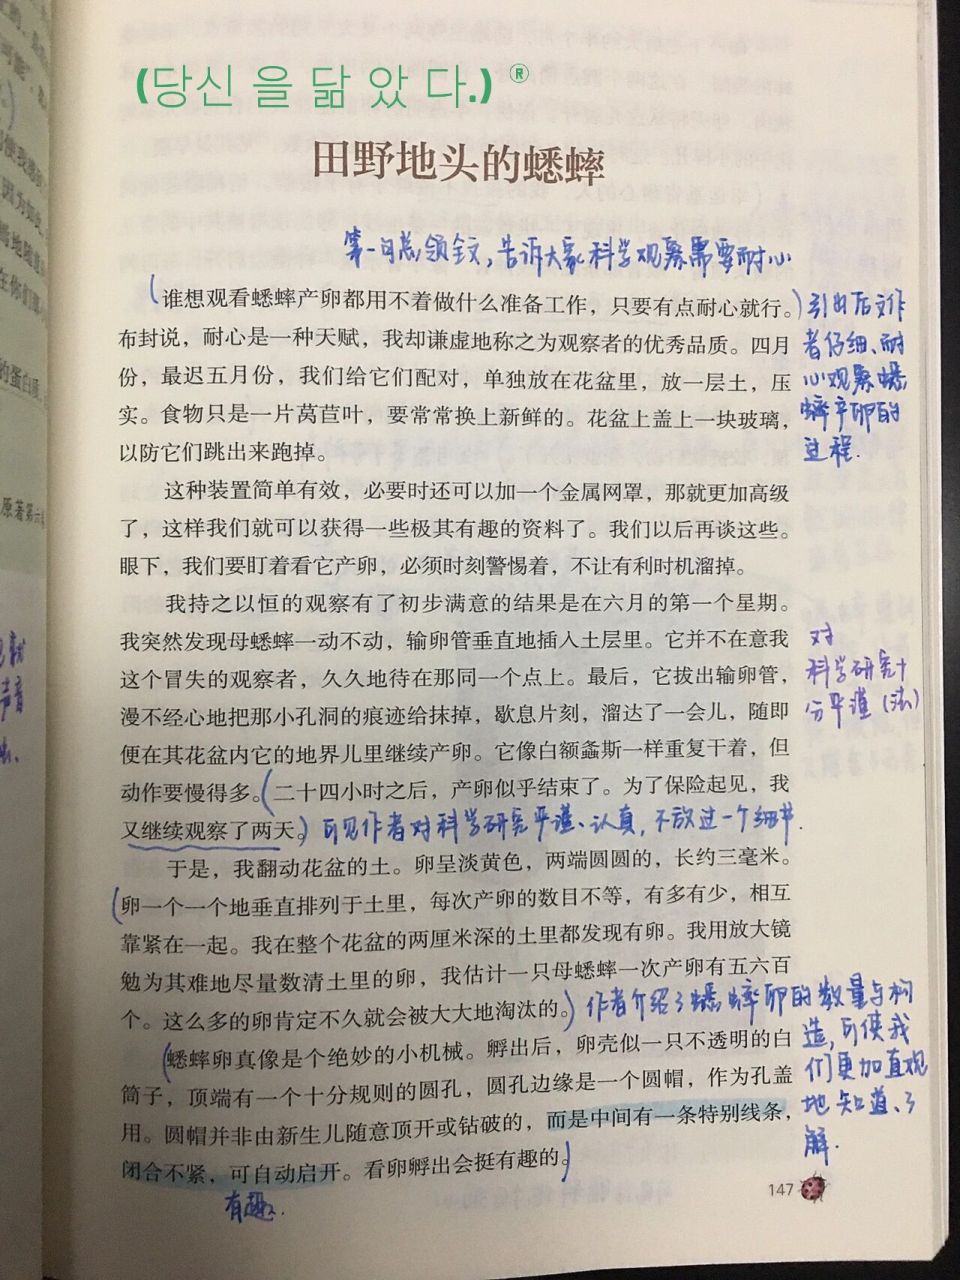 (당신 을 닮 았 다.) ®
田野地头的蟋蟀
第一句总领全文，告诉大家科学观察需要耐心
（谁想观看蟋蟀产卵都用不着做什么准备工作，只要有点耐心就行。）
布封说，耐心是一种天赋，我却谦虚地称之为观察者的优秀品质。四月
份，最迟五月份，我们给它们配对，单独放在花盆里，放一层土，压
实。食物只是一片莴苣叶，要常常换上新鲜的。花盆上盖上一块玻璃，
以防它们跳出来跑掉。
引出后文作
者仔细、耐
心观察蟋
蟀产卵的
过程.
这种装置简单有效，必要时还可以加一个金属网罩，那就更加高级
了，这样我们就可以获得一些极其有趣的资料了。我们以后再谈这些。
眼下，我们要盯着看它产卵，必须时刻警惕着，不让有利时机溜掉。
我持之以恒的观察有了初步满意的结果是在六月的第一个星期。
我突然发现母蟋蟀一动不动，输卵管垂直地插入土层里。它并不在意我
这个冒失的观察者，久久地待在那同一个点上。最后，它拔出输卵管，
漫不经心地把那小孔洞的痕迹给抹掉，歇息片刻，溜达了一会儿，随即
便在其花盆内它的地界儿里继续产卵。它像白额螽斯一样重复干着，但
动作要慢得多。（二十四小时之后，产卵似乎结束了。为了保险起见，我
又继续观察了两天。）可见作者对科学研究严谨、认真，不放过一个细节.
对
科学研究十
分严谨
于是，我翻动花盆的土。卵呈淡黄色，两端圆圆的，长约三毫米。
（卵一个一个地垂直排列于土里，每次产卵的数目不等，有多有少，相互
靠紧在一起。我在整个花盆的两厘米深的土里都发现有卵。我用放大镜
勉为其难地尽量数清土里的卵，我估计一只母蟋蟀一次产卵有五六百
个。这么多的卵肯定不久就会被大大地淘汰的。）作者介绍了蟋蟀卵的数量与构
造，可使我
们更加直观
地知道、了
解.
（蟋蟀卵真像是个绝妙的小机械。孵出后，卵壳似一只不透明的白
筒子，顶端有一个十分规则的圆孔，圆孔边缘是一个圆帽，作为孔盖
用。圆帽并非由新生儿随意顶开或钻破的，而是中间有一条特别线条，
闭合不紧，可自动启开。看卵孵出会挺有趣的。）
有趣.
147